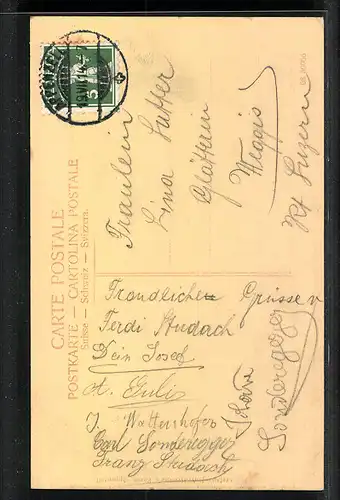 CARTE POSTALE
POSTKARTE — CARTOLINA POSTALE
Suisse — Schweiz — Svizzera.
5
Fräulein
Lina Sutter
Glätterin
Weggis
Kt Luzern
Freundliche Grüsse v
Ferdi Studach
Dein Josef
A.
J.
Carl Sonderegger
Franz Studach
Sonderegger